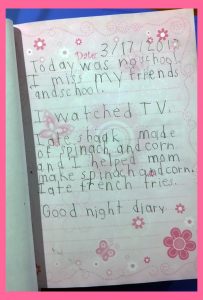 Date: 3/17/2017
Today was no school.
I miss my friends
and school.
I watched T.V.
I ate shaak made
of spinach and corn
and I helped mom
make spinach and corn.
I ate french fries.
Good night diary